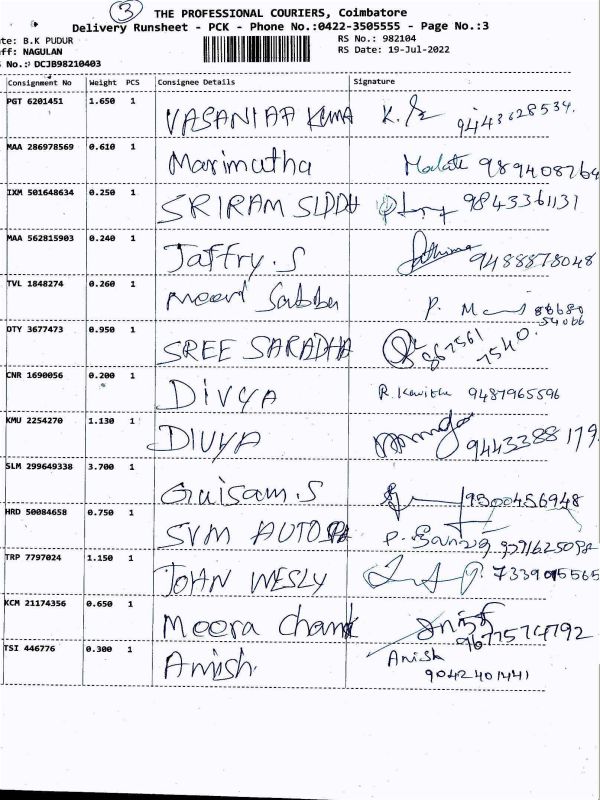 3
THE PROFESSIONAL COURIERS, Coimbatore
Delivery Runsheet - PCK - Phone No.:0422-3505555 - Page No.:3
te: B.K PUDUR
RS No.: 982104
ff: NAGULAN
RS Date: 19-Jul-2022
No.: DCJB98210403
Consignment No Weight PCS Consignee Details Signature
PGT 6201451 1.650 1 VASANTAA KUMA K. 9443628534.
MAA 286978569 0.610 1 Marimutha 989408764
IXM 501648634 0.250 1 SRIRAM SIDDH 9843361131
MAA 562815903 0.240 1 Jaffry.S Fathima 9488878048
TVL 1848274 0.260 1 Meeri Sabba P. M 88680
54066
OTY 3677473 0.950 1 SREE SARADHA 867561
7540.
CNR 1690056 0.200 1 DIVYA R. Kavitha 9487965596
KMU 2254270 1.130 1 DIVYA 9443388179.
SLM 299649338 3.700 1 Guisam.S 9500456948
HRD 50084658 0.750 1 SVM AUTO P. 9791625098
TRP 7797024 1.150 1 JOHN WESLY 7339015565
KCM 21174356 0.650 1 Meera chand 9677574792
TSI 446776 0.300 1 Amish. Anish
9042401441